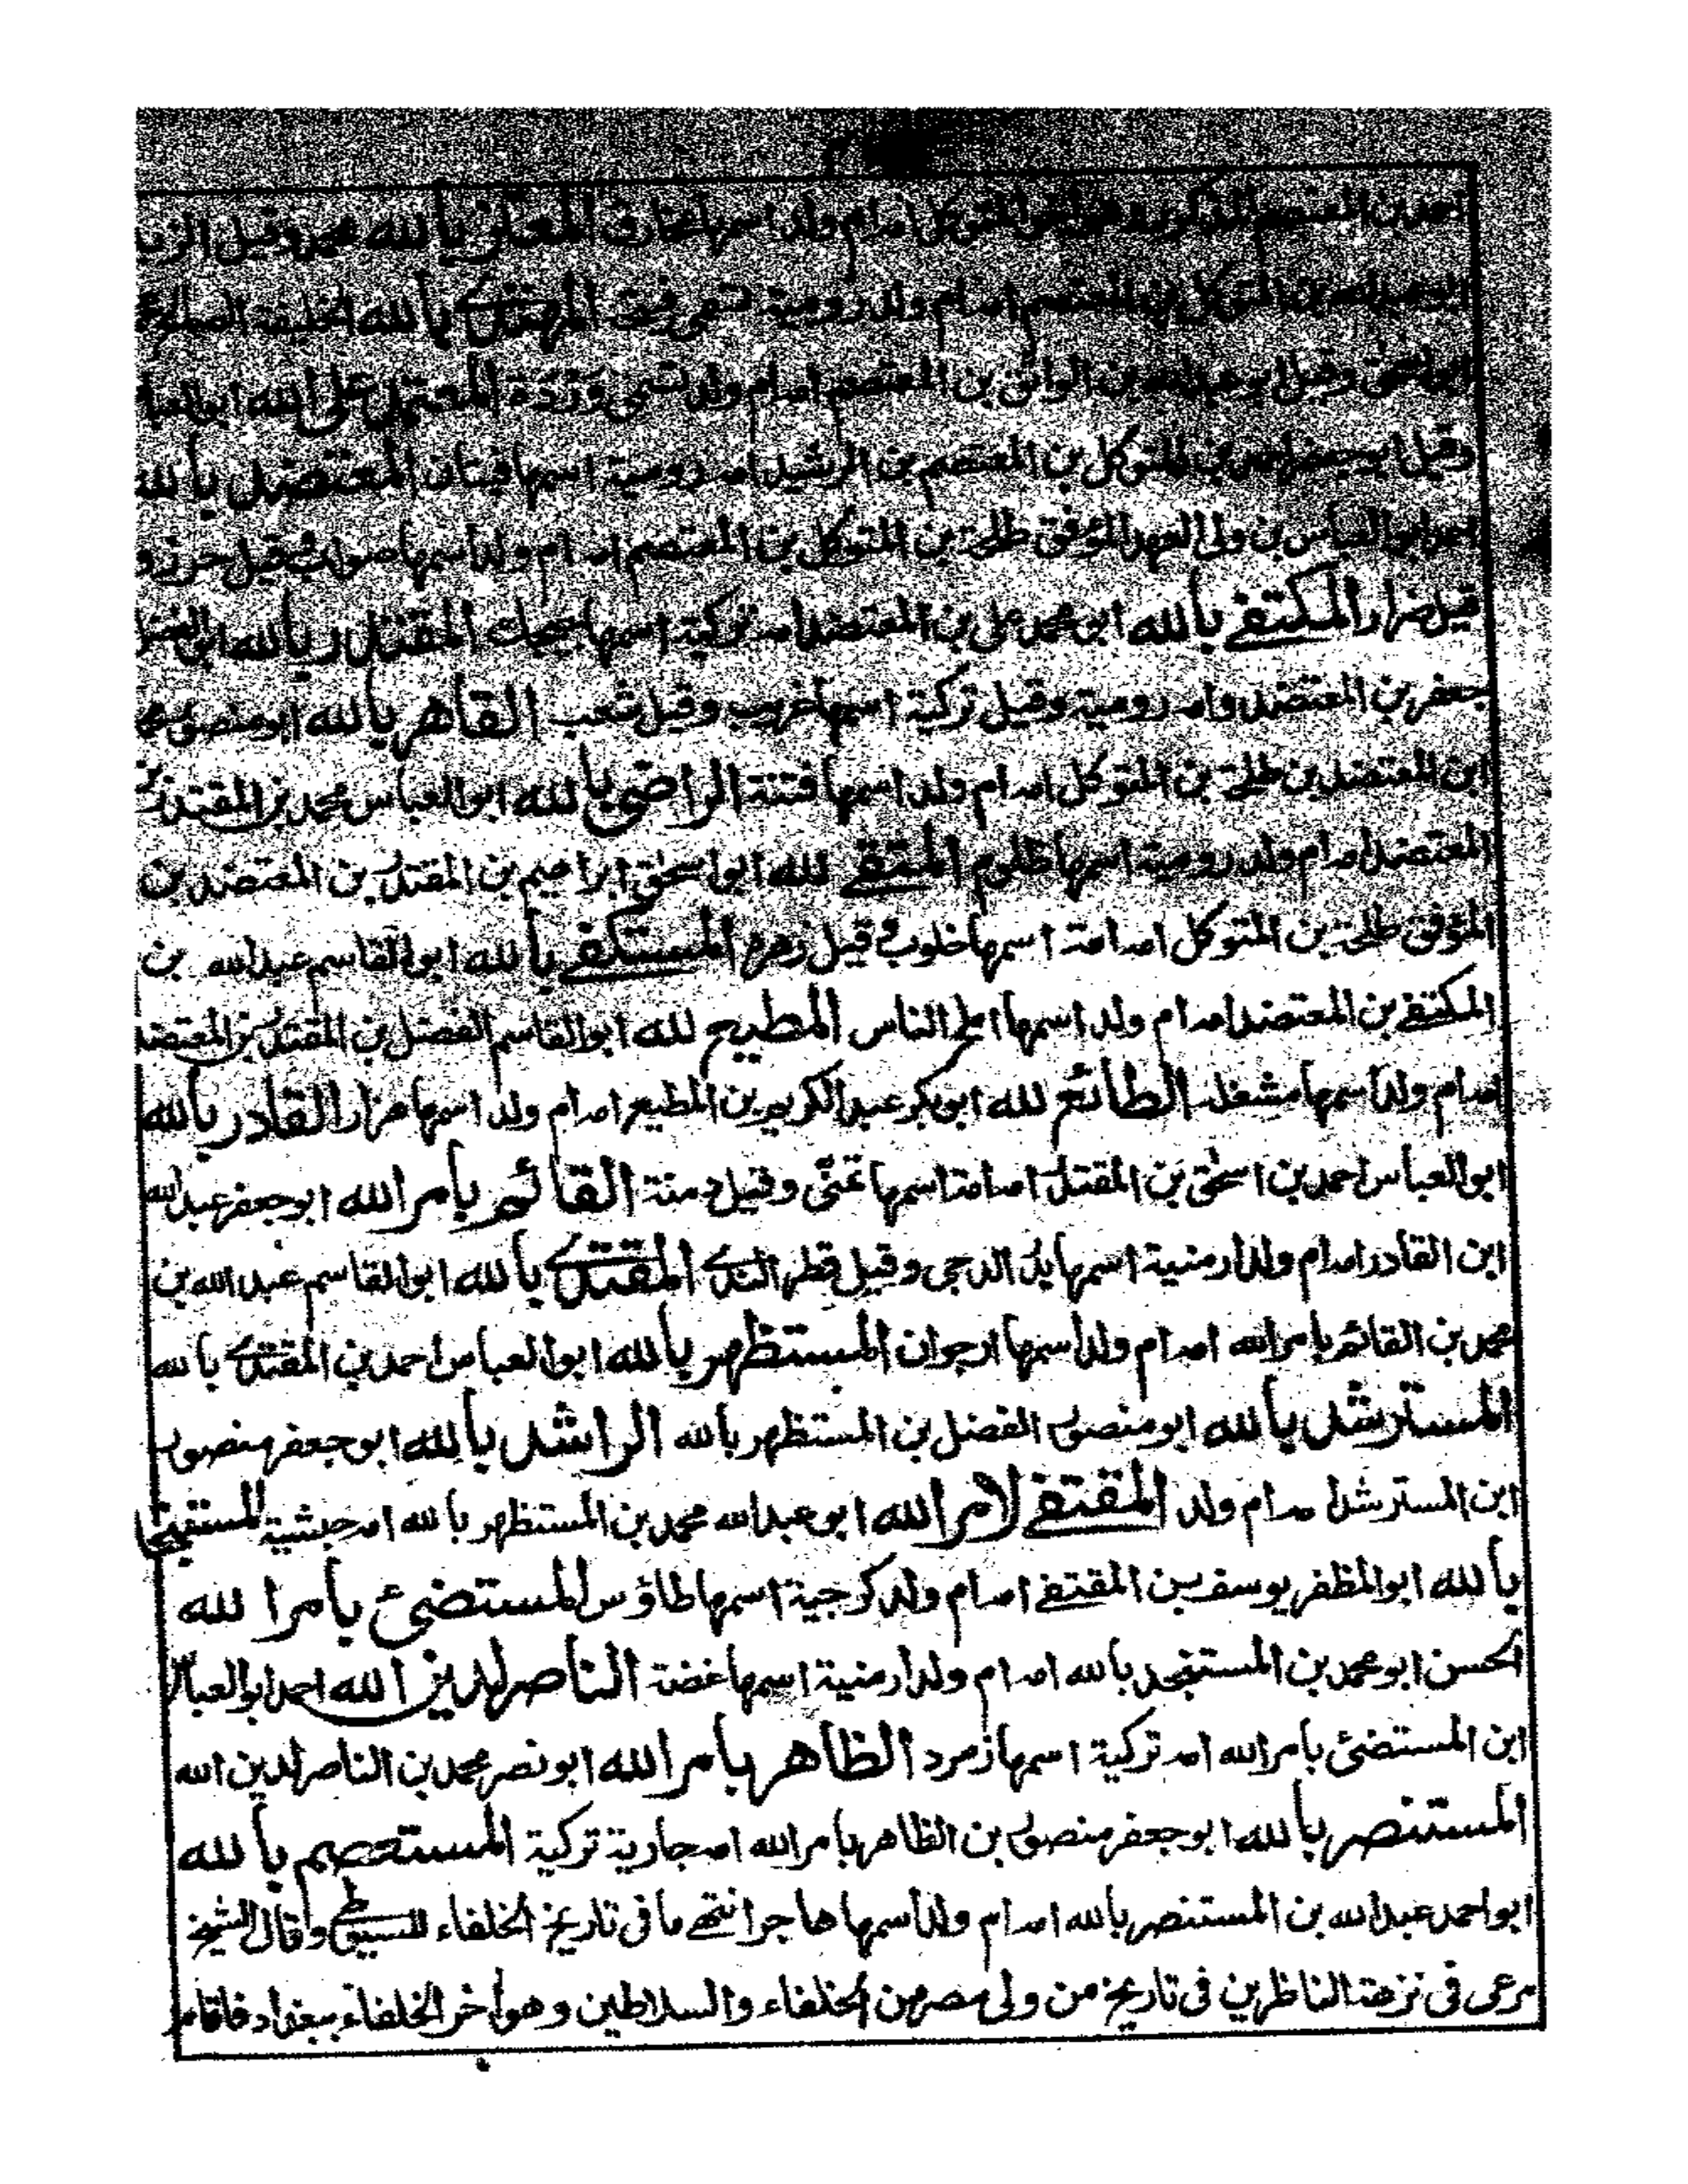 احمد بن المعتصم المذكور وهو اخو المتوكل امه ام ولد اسمها مخارق المعتز بالله محمد وقيل الزبير
ابو عبدالله بن المتوكل بن المعتصم امه ام ولد رومية تسمى قبيحة المهتدى بالله الخليفة الصالح محمد
ابو اسحق وقيل ابو عبدالله بن الواثق بن المعتصم امه ام ولد تسمى وردة المعتمد على الله ابو العباس
وقيل ابو جعفر احمد بن المتوكل بن المعتصم بن الرشيد امه رومية اسمها فتيان المعتضد بالله
احمد ابو العباس بن ولى العهد الموفق طلحة بن المتوكل بن المعتصم امه ام ولد اسمها صواب وقيل حرز و
قيل ضرار المكتفے بالله ابو محمد على بن المعتضد امه تركية اسمها جيجك المقتدر بالله ابو الفضل
جعفر بن المعتضد وامه رومية وقيل تركية اسمها غريب وقيل شعب القاهر بالله ابو منصور محمد
ابن المعتضد بن طلحة بن المتوكل امه ام ولد اسمها فتنة الراضى بالله ابو العباس محمد بن المقتدر بن
المعتضد امه ام ولد رومية اسمها ظلوم المتقے لله ابو اسحق ابراهيم بن المقتدر بن المعتضد بن
الموفق طلحة بن المتوكل امه امة اسمها خلوب وقيل زهرة المستكفے بالله ابو القاسم عبدالله بن
المكتفے بن المعتضد امه ام ولد اسمها املح الناس المطيع لله ابو القاسم الفضل بن المقتدر بن المعتضد
امه ام ولد اسمها مشغلة الطائع لله ابو بكر عبد الكريم بن المطيع امه ام ولد اسمها هزار القادر بالله
ابو العباس احمد بن اسحٰق بن المقتدر امه امة اسمها تمنّى وقيل دمنة القائم بامر الله ابو جعفر عبد الله
ابن القادر امه ام ولد ارمنية اسمها بدر الدجى وقيل قطر الندے المقتدے بالله ابو القاسم عبد الله بن
محمد بن القائم بامر الله امه ام ولد اسمها ارجوان المستظهر بالله ابو العباس احمد بن المقتدے بالله
المسترشد بالله ابو منصور الفضل بن المستظهر بالله الراشد بالله ابو جعفر منصور
ابن المسترشد امه ام ولد المقتفے لامر الله ابو عبد الله محمد بن المستظهر بالله امه حبشية المستنجد
بالله ابو المظفر يوسف بن المقتفے امه ام ولد كرجية اسمها طاؤس المستضئ بامر الله
الحسن ابو محمد بن المستنجد بالله امه ام ولد ارمنية اسمها غضة الناصر لدين الله احمد ابو العباس
ابن المستضئ بامر الله امه تركية اسمها زمرد الظاهر بامر الله ابو نصر محمد بن الناصر لدين الله
المستنصر بالله ابو جعفر منصور بن الظاهر بامر الله امه جارية تركية المستعصم بالله
ابو احمد عبد الله بن المستنصر بالله امه ام ولد اسمها هاجر انتهے ما فى تاريخ الخلفاء للسيوطى وقال الشيخ
مرعى فى نزهة الناظرين فى تاريخ من ولى مصر من الخلفاء والسلاطين وهو اخر الخلفاء ببغداد فاقام